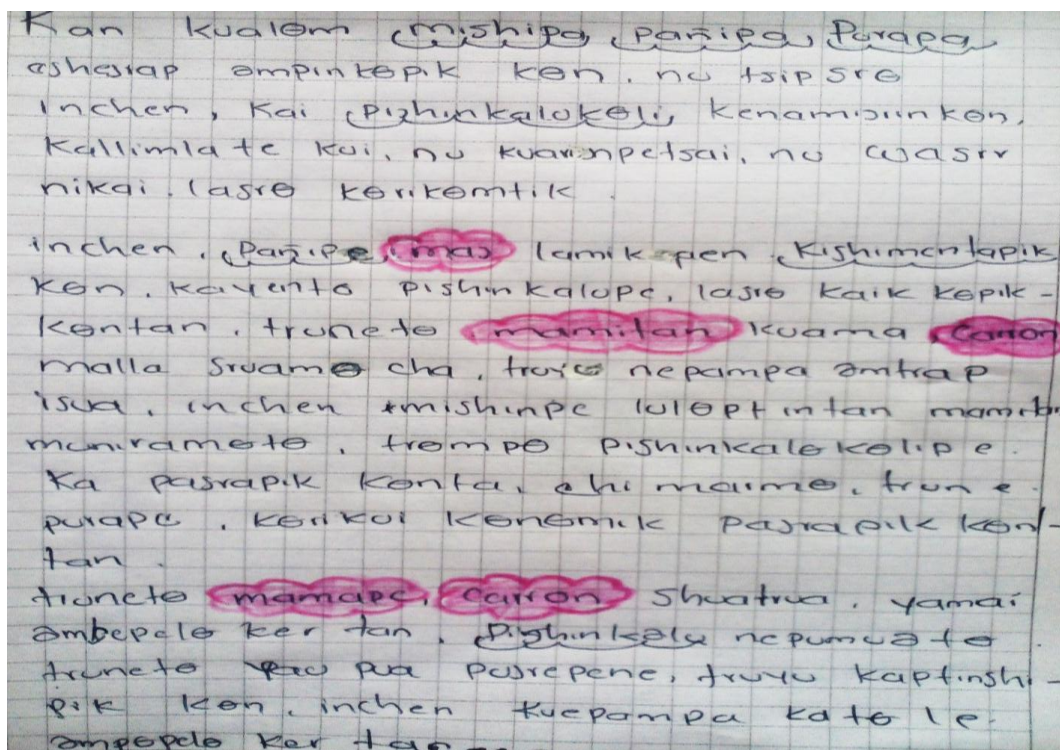 Kan kualɵm mishipa, pañipa, purapa
ashasrap ɵmpintɵpik kɵn. nu tsip srɵ
inchen, Kai pizhinkalukɵli, kenamisrin kɵn,
Kallimla te kui, nu kuarinpetsai, nu wasrr
nikai. lasrɵ kɵrikɵmtik.
inchen. pañipe, mas lamik pen kishimentapik
kɵn. kayentɵ pishinkalupe, lasrɵ kaik kɵpik-
kɵntan. trunetɵ mamitan kuama carron
malla sruamɵ cha, nepampa ɵmtrap
isua, inchen mishinpe lulɵptintan
muniramɵtɵ, trɵmpɵ pishinkalɵkɵlipe.
Ka pasrapik kɵnta, chi maimɵ, trun e
purape. kɵrikui kɵnɵmik pasrapik kɵn-
tan.
trunetɵ mamape, carron shuatrua. yamai
ɵmbepelɵ ker tan. pishinkalu nepumuatɵ
trunetɵ pua pasrepene, truyu kaptinshi-
pik kɵn. inchen kuepampa ka tɵ le.
ɵmpepelɵ ker tan